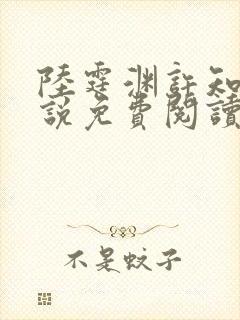 陸霆淵許知
說免費閱讀
不是蚊子